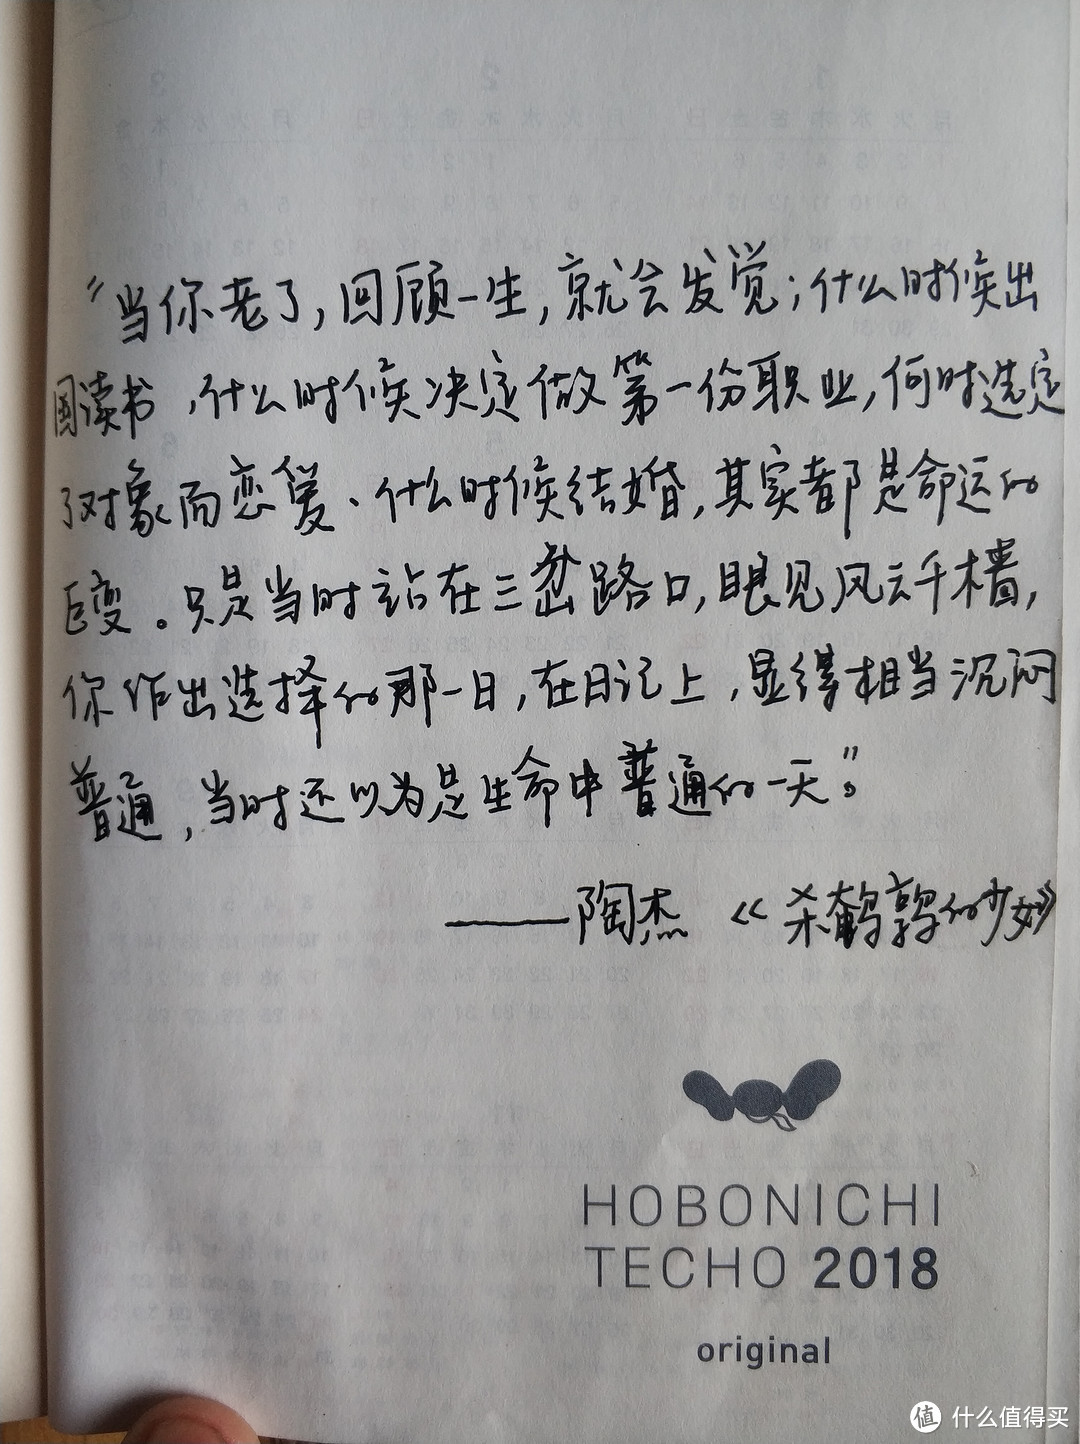 “当你老了，回顾一生，就会发觉；什么时候出
国读书，什么时候决定做第一份职业，何时选定
了对象而恋爱、什么时候结婚，其实都是命运的
巨变。只是当时站在三岔路口，眼见风云千樯，
你作出选择的那一日，在日记上，显得相当沉闷
普通，当时还以为是生命中普通的一天。”
——陶杰 《杀鹌鹑的少女》
HOBONICHI
TECHO 2018
original
值 什么值得买